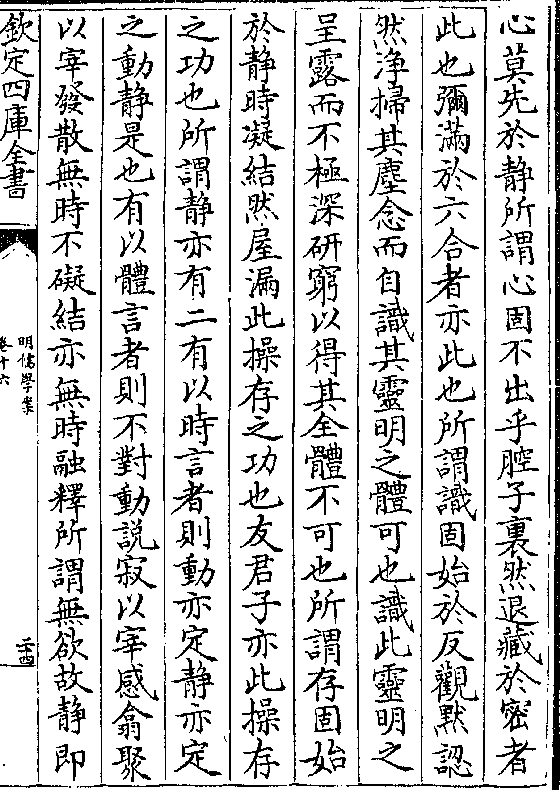 心莫先於静所謂心固不出乎腔子裏然退藏於密者
此也彌滿於六合者亦此也所謂識固始於反觀黙認
然浄掃其塵念而自識其靈明之體可也識此靈明之
呈露而不極深研窮以得其全體不可也所謂存固始
於静時凝結然屋漏此操存之功也友君子亦此操存
之功也所謂静亦有二有以時言者則動亦定静亦定
之動静是也有以體言者則不對動説寂以宰感翕聚
以宰發散無時不礙結亦無時融釋所謂無欲故静即
欽定四庫全書
明儒學案
卷十六
二十四